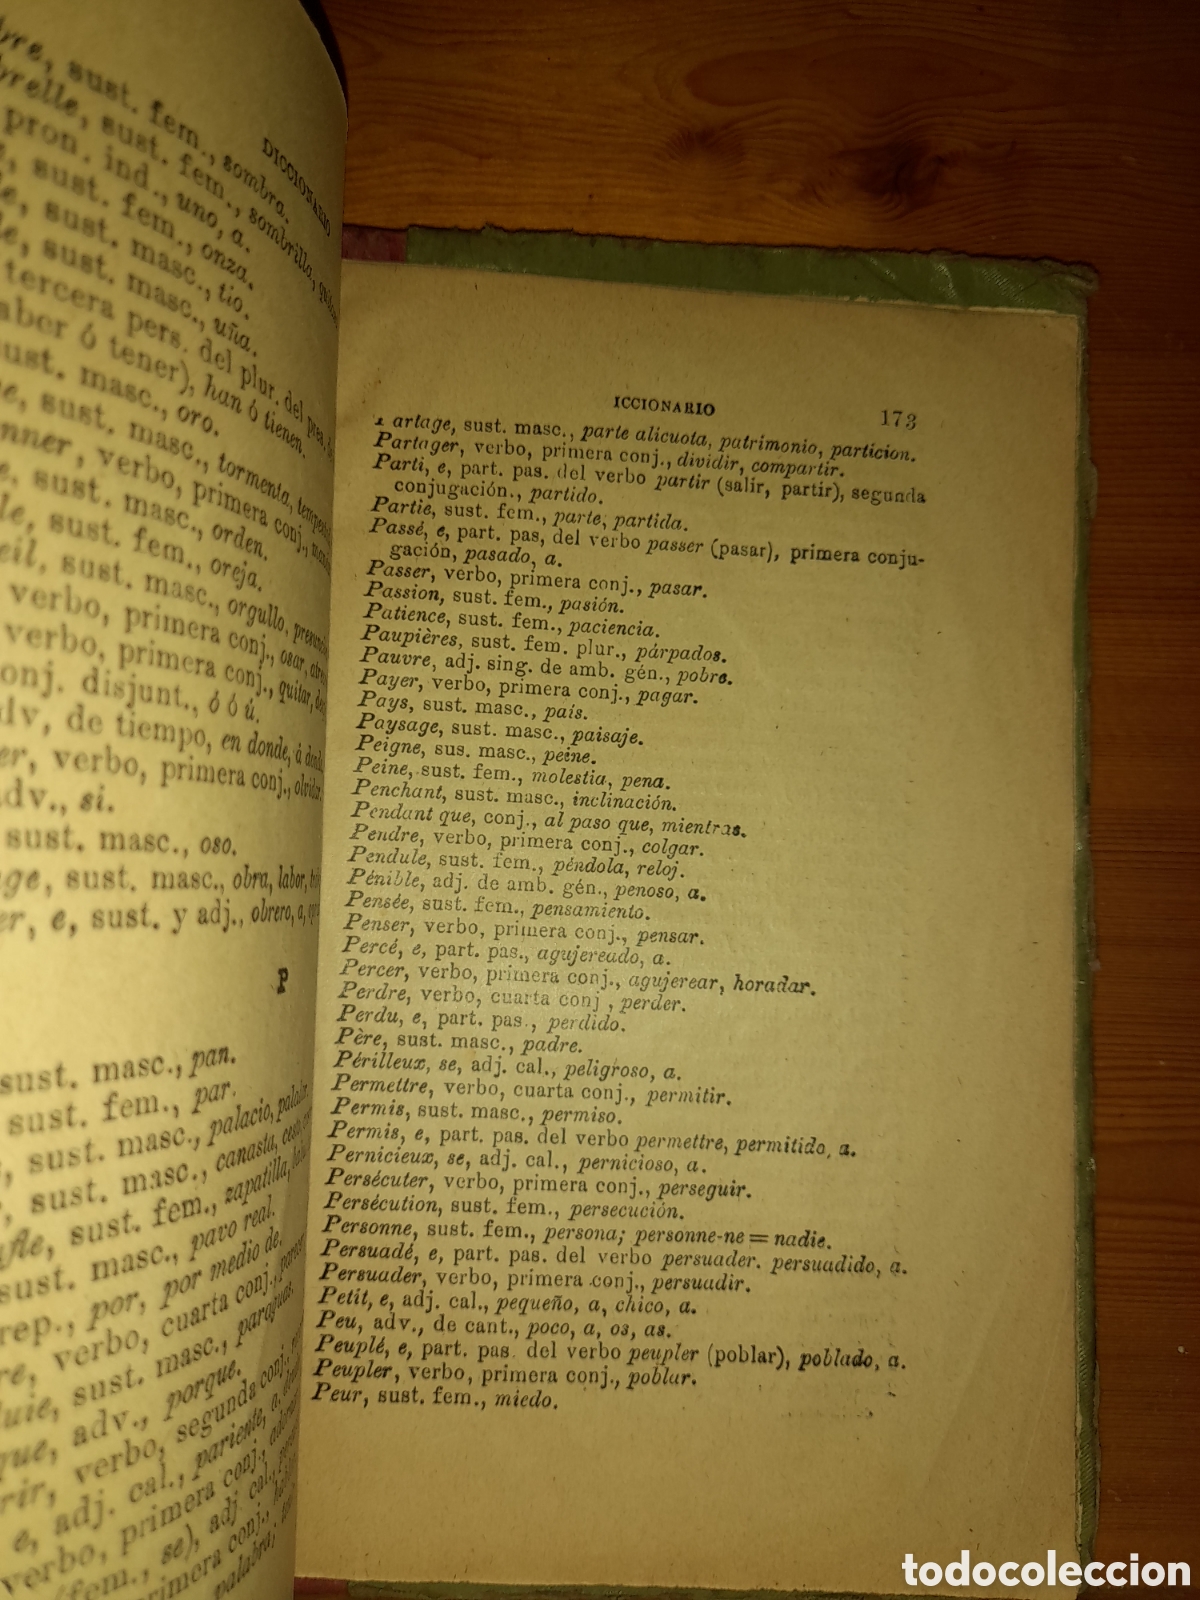 DICCIONARIO
sust. fem., sombra.
sust. fem., sombrilla,
pron. ind., uno, a.
sust. fem., onza.
sust. masc., tio.
sust. masc., uña.
tercera pers. del plur. del pres.
haber ó tener), han ó tienen.
sust. masc., oro.
sust. masc., tormenta,
verbo, primera conj.,
sust. masc., orden.
sust. fem., oreja.
sust. masc., orgullo,
verbo, primera conj., osar,
verbo, primera conj., quitar,
conj. disjunt., ó ó ú.
adv, de tiempo, en donde, á donde
verbo, primera conj., olvidar.
adv., si.
sust. masc., oso.
sust. masc., obra, labor,
e, sust. y adj., obrero, a,
P
sust. masc., pan.
sust. fem., par.
sust. masc., palacio, paladar.
sust. masc., canasta,
sust. fem., zapatilla,
sust. masc., pavo real.
prep., por, por medio de.
verbo, cuarta conj.,
sust. masc., paraguas.
adv., porque.
verbo, segunda conj.,
e, adj. cal., pariente, a,
verbo, primera conj.,
(fem., se), adj. cal.,
primera conj.,
palabra;
ICCIONARIO 173
Partage, sust. masc., parte alicuota, patrimonio, particion.
Partager, verbo, primera conj., dividir, compartir.
Parti, e, part. pas. del verbo partir (salir, partir), segunda
conjugación., partido.
Partie, sust. fem., parte, partida.
Passé, e, part. pas, del verbo passer (pasar), primera conju-
gación, pasado, a.
Passer, verbo, primera conj., pasar.
Passion, sust. fem., pasión.
Patience, sust. fem., paciencia.
Paupières, sust. fem. plur., párpados.
Pauvre, adj. sing. de amb. gén., pobre.
Payer, verbo, primera conj., pagar.
Pays, sust. masc., país.
Paysage, sust. masc., paisaje.
Peigne, sus. masc., peine.
Peine, sust. fem., molestia, pena.
Penchant, sust. masc., inclinación.
Pendant que, conj., al paso que, mientras.
Pendre, verbo, primera conj., colgar.
Pendule, sust. fem., péndola, reloj.
Pénible, adj. de amb. gén., penoso, a.
Pensée, sust. fem., pensamiento.
Penser, verbo, primera conj., pensar.
Percé, e, part. pas., agujereado, a.
Percer, verbo, primera conj., agujerear, horadar.
Perdre, verbo, cuarta conj , perder.
Perdu, e, part. pas., perdido.
Père, sust. masc., padre.
Périlleux, se, adj. cal., peligroso, a.
Permettre, verbo, cuarta conj., permitir.
Permis, sust. masc., permiso.
Permis, e, part. pas. del verbo permettre, permitido, a.
Pernicieux, se, adj. cal., pernicioso, a.
Persécuter, verbo, primera conj., perseguir.
Persécution, sust. fem., persecución.
Personne, sust. fem., persona; personne-ne = nadie.
Persuadé, e, part. pas. del verbo persuader. persuadido, a.
Persuader, verbo, primera conj., persuadir.
Petit, e, adj. cal., pequeño, a, chico, a.
Peu, adv., de cant., poco, a, os, as.
Peuplé, e, part. pas. del verbo peupler (poblar), poblado, a.
Peupler, verbo, primera conj., poblar.
Peur, sust. fem., miedo.
todocoleccion